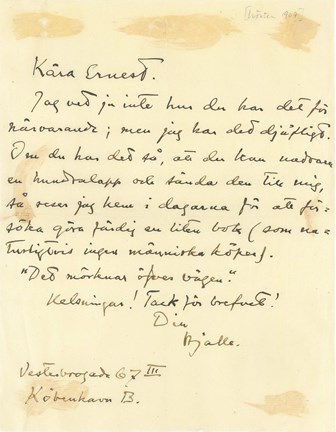 Kära Ernest.
Jag vet ju inte hur du har det för
närvarande; men jag har det djäfligt.
Om du har det så, att du kan undvara
en hundralapp och sända den till mig,
så reser jag hem i dagarna för att för-
söka göra färdig en liten bok (som na-
turligtvis ingen människa köper).
"Det mörknar öfver vägen".
Helsningar! Tack för brefvet!
Din
Hjalle.
Vesterbrogade 67 III
København B.